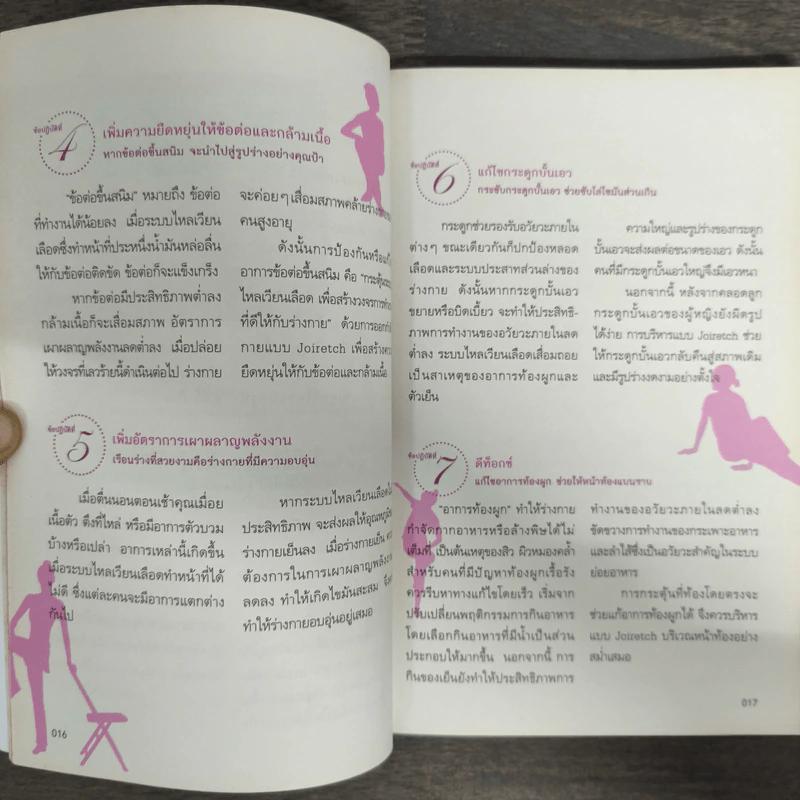 ข้อปฏิบัติที่
4
เพิ่มความยืดหยุ่นให้ข้อต่อและกล้ามเนื้อ
หากข้อต่อขึ้นสนิม จะนำไปสู่รูปร่างอย่างคุณป้า
"ข้อต่อขึ้นสนิม" หมายถึง ข้อต่อ
ที่ทำงานได้น้อยลง เมื่อระบบไหลเวียน
เลือดซึ่งทำหน้าที่ประหนึ่งน้ำมันหล่อลื่น
ให้กับข้อต่อติดขัด ข้อต่อก็จะแข็งเกร็ง
หากข้อต่อมีประสิทธิภาพต่ำลง
กล้ามเนื้อก็จะเสื่อมสภาพ อัตราการ
เผาผลาญพลังงานลดต่ำลง เมื่อปล่อย
ให้วงจรที่เลวร้ายนี้ดำเนินต่อไป ร่างกาย
จะค่อยๆ เสื่อมสภาพคล้ายร่างกาย
คนสูงอายุ
ดังนั้นการป้องกันหรือแก้
อาการข้อต่อขึ้นสนิม คือ "กระตุ้น
ไหลเวียนเลือด เพื่อสร้างวงจรการทำ
ที่ดีให้กับร่างกาย" ด้วยการออกกำลัง
กายแบบ Joiretch เพื่อสร้างความ
ยืดหยุ่นให้กับข้อต่อและกล้ามเนื้อ
ข้อปฏิบัติที่
5
เพิ่มอัตราการเผาผลาญพลังงาน
เรือนร่างที่สวยงามคือร่างกายที่มีความอบอุ่น
เมื่อตื่นนอนตอนเช้าคุณเมื่อย
เนื้อตัว ตึงที่ไหล่ หรือมีอาการตัวบวม
บ้างหรือเปล่า อาการเหล่านี้เกิดขึ้น
เมื่อระบบไหลเวียนเลือดทำหน้าที่ได้
ไม่ดี ซึ่งแต่ละคนจะมีอาการแตกต่าง
กันไป
หากระบบไหลเวียนเลือด
ประสิทธิภาพ จะส่งผลให้อุณหภูมิ
ร่างกายเย็นลง เมื่อร่างกายเย็น ความ
ต้องการในการเผาผลาญพลังงาน
ลดลง ทำให้เกิดไขมันสะสม จึง
ทำให้ร่างกายอบอุ่นอยู่เสมอ
016
ข้อปฏิบัติที่
6
แก้ไขกระดูกบั้นเอว
กระชับกระดูกบั้นเอว ช่วยขับไล่ไขมันส่วนเกิน
กระดูกช่วยรองรับอวัยวะภายใน
ต่างๆ ขณะเดียวกันก็ปกป้องหลอด
เลือดและระบบประสาทส่วนล่างของ
ร่างกาย ดังนั้นหากกระดูกบั้นเอว
ขยายหรือบิดเบี้ยว จะทำให้ประสิทธิ-
ภาพการทำงานของอวัยวะภายในลด
ต่ำลง ระบบไหลเวียนเลือดเสื่อมถอย
เป็นสาเหตุของอาการท้องผูกและ
ตัวเย็น
ความใหญ่และรูปร่างของกระดูก
บั้นเอวจะส่งผลต่อขนาดของเอว ดังนั้น
คนที่มีกระดูกบั้นเอวใหญ่จึงมีเอวหนา
นอกจากนี้ หลังจากคลอดลูก
กระดูกบั้นเอวของผู้หญิงยังผิดรูป
ได้ง่าย การบริหารแบบ Joiretch ช่วย
ให้กระดูกบั้นเอวกลับคืนสู่สภาพเดิม
และมีรูปร่างงดงามอย่างตั้งใจ
ข้อปฏิบัติที่
7
ดีท็อกซ์
แก้ไขอาการท้องผูก ช่วยให้หน้าท้องแบนราบ
"อาการท้องผูก" ทำให้ร่างกาย
กำจัดกากอาหารหรือล้างพิษได้ไม่
เต็มที่ เป็นต้นเหตุของสิว ผิวหมองคล้ำ
สำหรับคนที่มีปัญหาท้องผูกเรื้อรัง
ควรรีบหาทางแก้ไขโดยเร็ว เริ่มจาก
ปรับเปลี่ยนพฤติกรรมการกินอาหาร
โดยเลือกกินอาหารที่มีน้ำเป็นส่วน
ประกอบให้มากขึ้น นอกจากนี้ การ
กินของเย็นยังทำให้ประสิทธิภาพการ
ทำงานของอวัยวะภายในลดต่ำลง
ขัดขวางการทำงานของกระเพาะอาหาร
และลำไส้ซึ่งเป็นอวัยวะสำคัญในระบบ
ย่อยอาหาร
การกระตุ้นที่ท้องโดยตรงจะ
ช่วยแก้อาการท้องผูกได้ จึงควรบริหาร
แบบ Joiretch บริเวณหน้าท้องอย่าง
สม่ำเสมอ
017